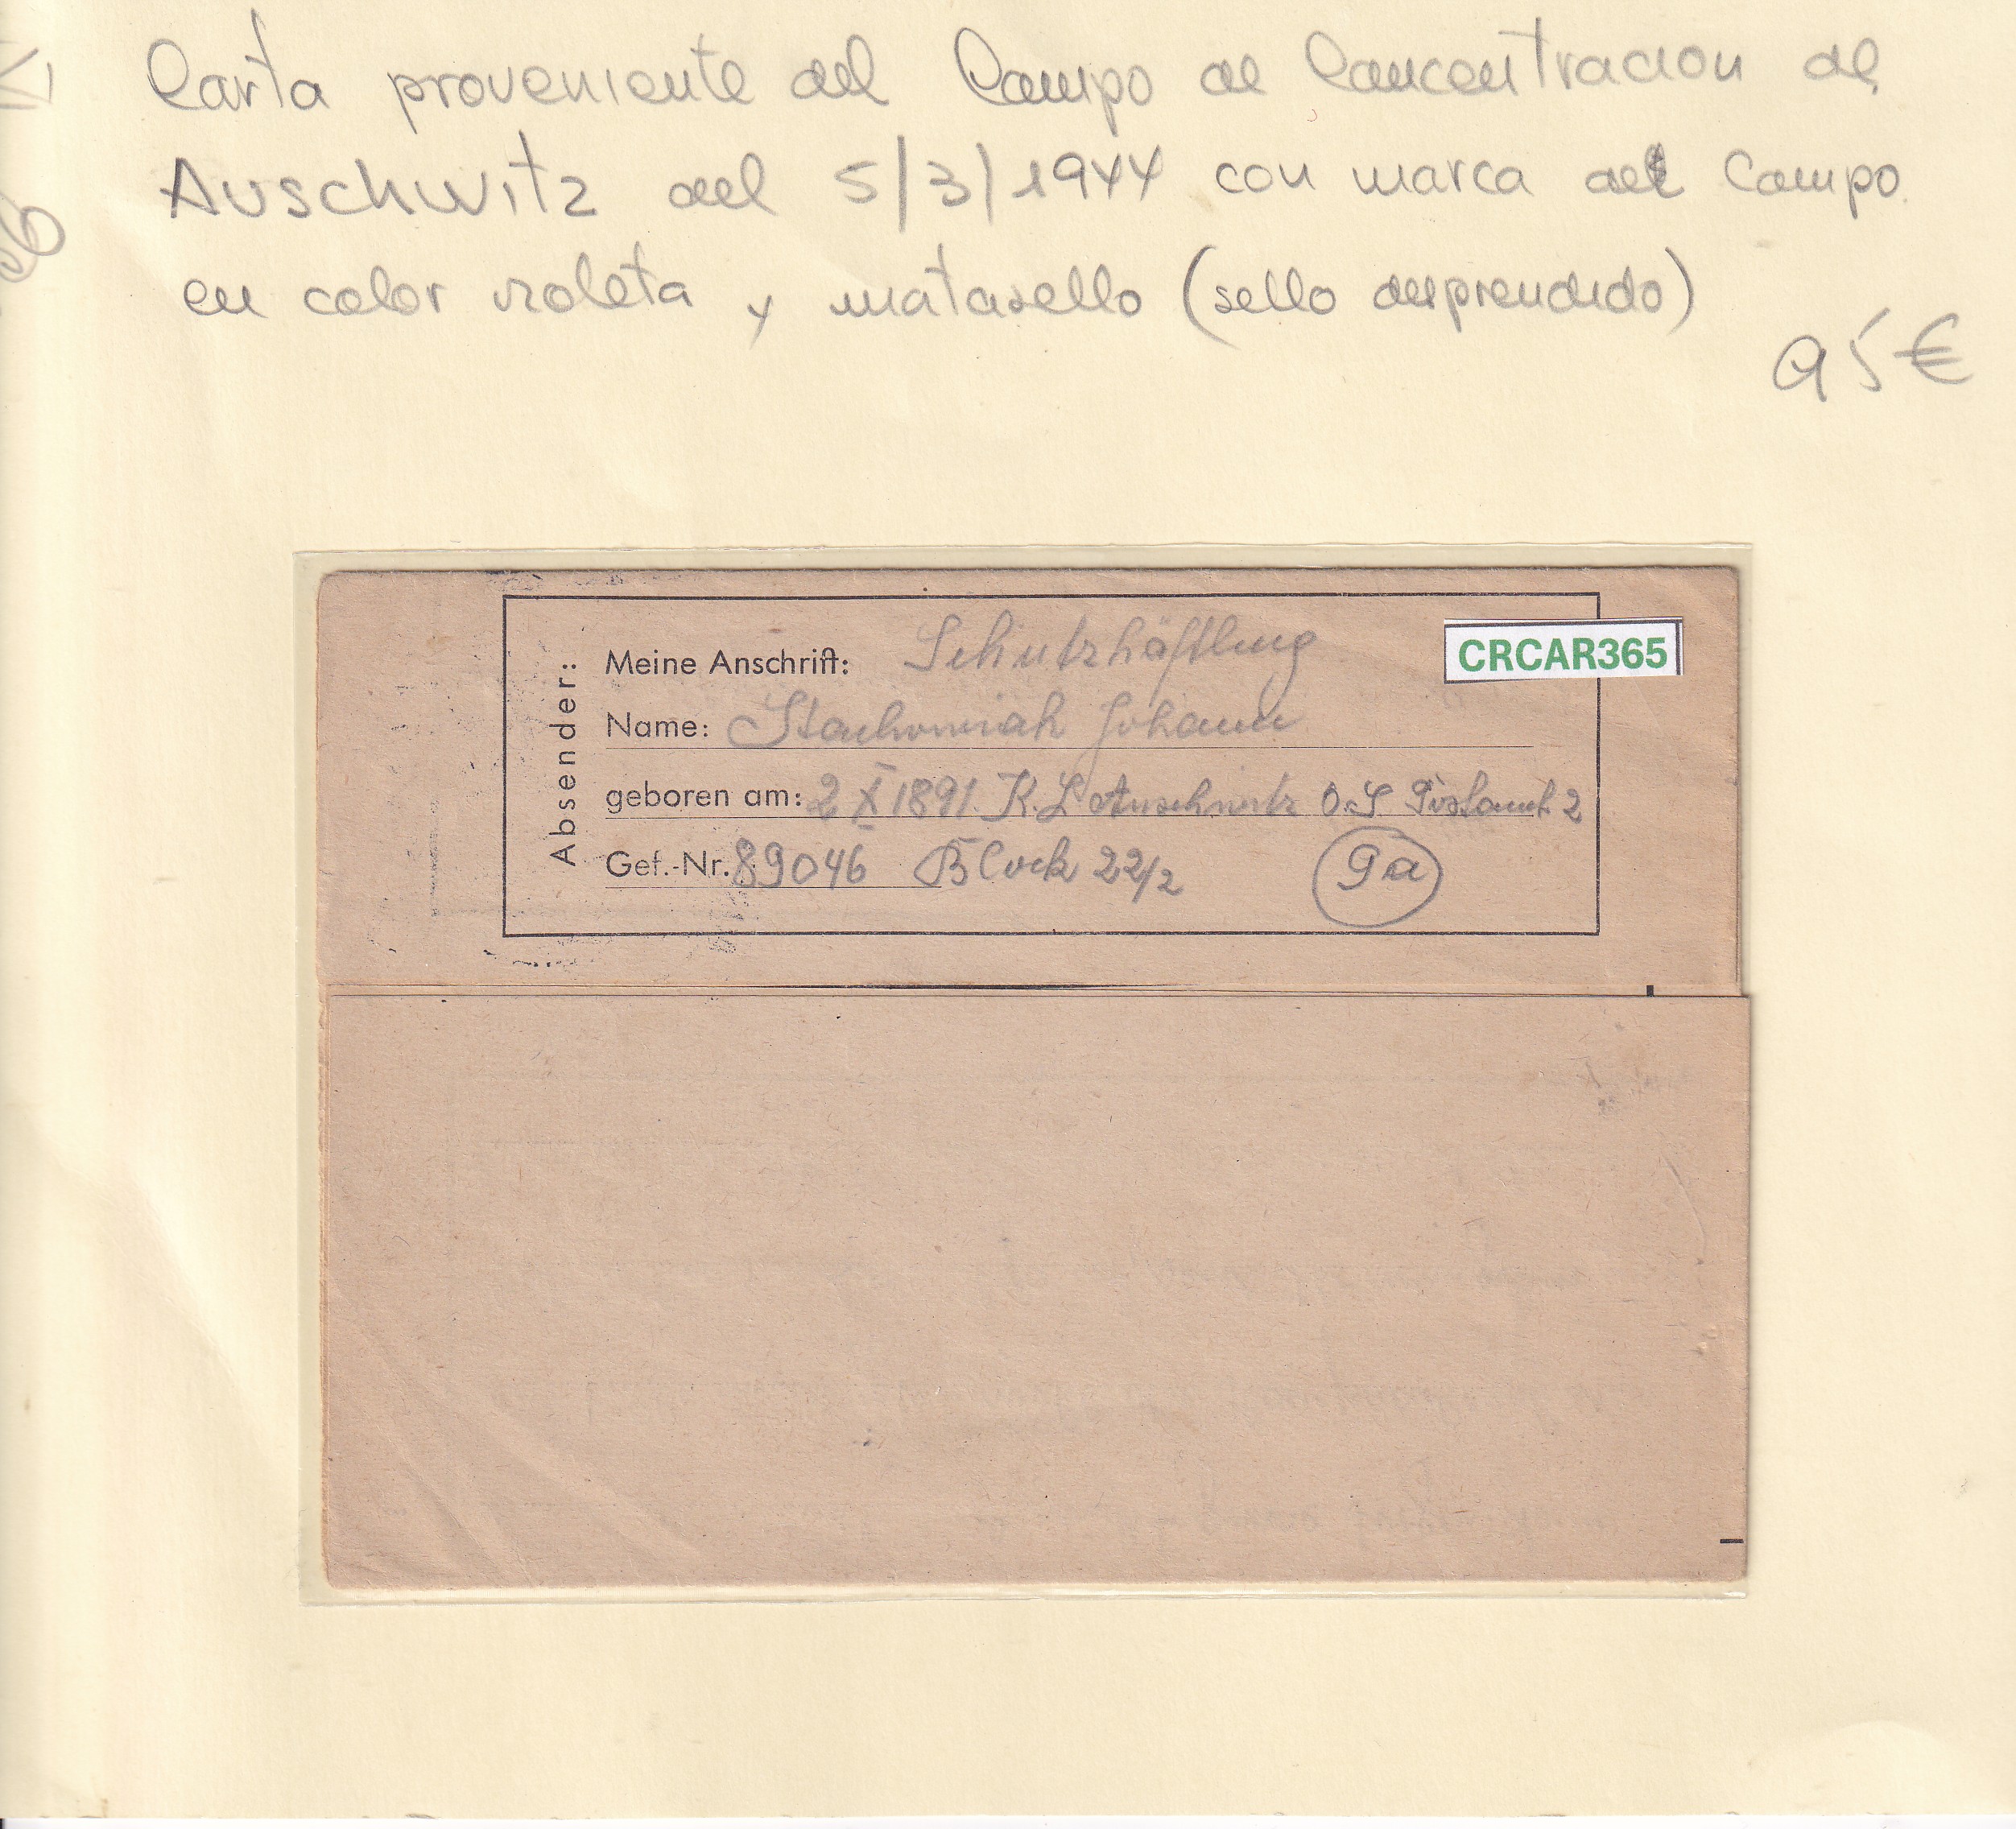 Carta proveniente del Campo de Concentracion de
Auschwitz del 5/3/1944 con marca del Campo
en color violeta y matasello (sello desprendido)
95€
CRCAR365
Absender:
Meine Anschrift: Schutzhäftling
Name: Stachowiak Johann
geboren am: 2 X 1891. K. L Auschwitz O.S Postamt 2
Gef.-Nr. 89046 Block 22/2 9a